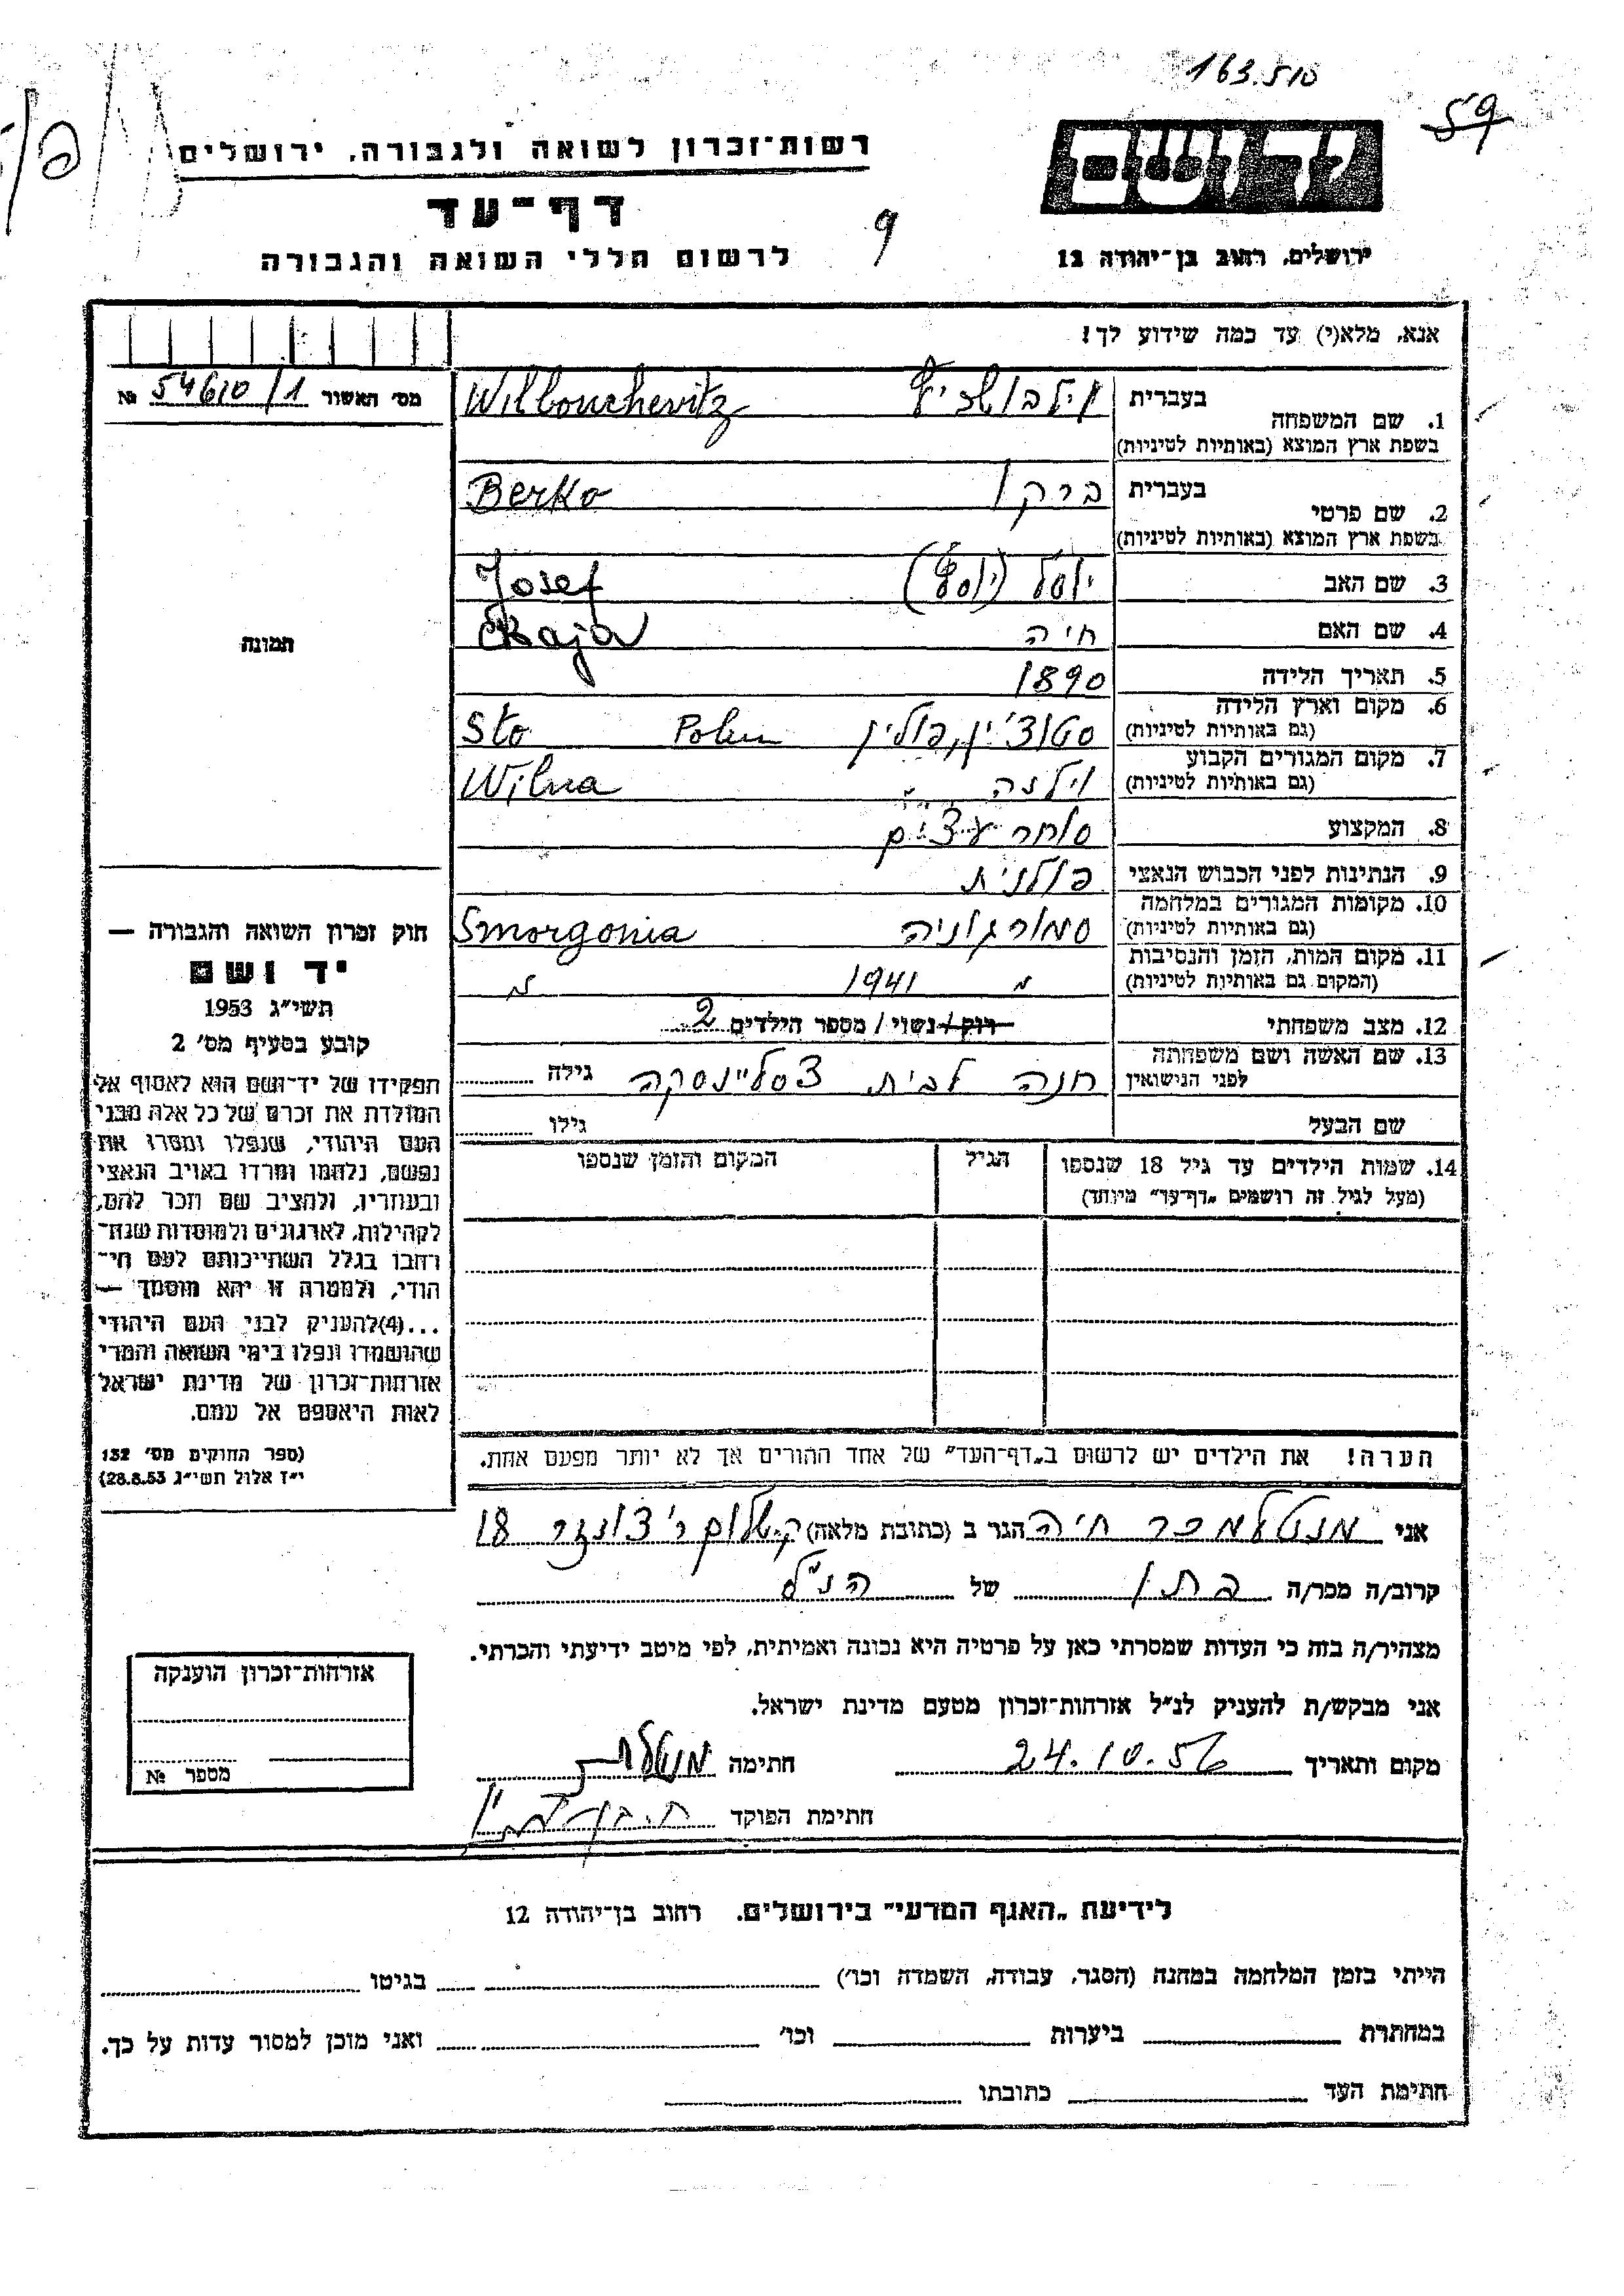 163.510
59
רשות־זכרון לשואה ולגבורה, ירושלים
דף־עד
9
לרשום חללי השואה והגבורה
ידושם
ירושלים, רחוב בן־יהודה 12
אנא, מלא(י) עד כמה שידוע לך!
מס' האשור 54610/1 №
1. שם המשפחה
בעברית
ווילבושביץ Wilbouchevitz
בשפת ארץ המוצא (באותיות לטיניות)
2. שם פרטי
בעברית
ברקו Berko
בשפת ארץ המוצא (באותיות לטיניות)
3. שם האב יוסל (יוסף) Josef
4. שם האם חיה Chaja
5. תאריך הלידה 1890
6. מקום וארץ הלידה סטוצ'ין, פולין Polen Sto
(גם באותיות לטיניות)
7. מקום המגורים הקבוע וילנה Wilna
(גם באותיות לטיניות)
8. המקצוע סוחר עצים
9. הנתינות לפני הכבוש הנאצי פולנית
10. מקומות המגורים במלחמה סמורגוניה Smorgonia
(גם באותיות לטיניות)
11. מקום המות, הזמן והנסיבות 1941
(המקום גם באותיות לטיניות)
12. מצב משפחתי רוק / נשוי / מספר הילדים 2
13. שם האשה ושם משפחתה
לפני הנישואין חנה לבית גילה
שם הבעל גילו
14. שמות הילדים עד גיל 18 שנספו
(מעל לגיל זה רושמים „דף־עד” מיוחד)
הגיל
המקום והזמן שנספו
הערה! את הילדים יש לרשום ב„דף־העד” של אחד ההורים אך לא יותר מפעם אחת.
תמונה
חוק זכרון השואה והגבורה —
יד ושם
תשי״ג 1953
קובע בסעיף מס' 2
תפקידו של יד־ושם הוא לאסוף אל
המולדת את זכרם של כל אלה מבני
העם היהודי, שנפלו ומסרו את
נפשם, נלחמו ומרדו באויב הנאצי
ובעוזריו, ולהציב שם וזכר להם,
לקהילות, לארגונים ולמוסדות שנח־
רבו בגלל השתייכותם לעם הי־
הודי, ולמטרה זו יהא מוסמך —
...(4)להעניק לבני העם היהודי
שהושמדו ונפלו בימי השואה והמרי
אזרחות־זכרון של מדינת ישראל
לאות היאספם אל עמם.
(ספר החוקים מס' 132
י״ז אלול תשי״ג 28.8.53)
אני מנטלמכר חיה הגר ב (כתובת מלאה) 18
קרוב/ה מכר/ה של הנ״ל
מצהיר/ה בזה כי העדות שמסרתי כאן על פרטיה היא נכונה ואמיתית, לפי מיטב ידיעתי והכרתי.
אני מבקש/ת להעניק לנ״ל אזרחות־זכרון מטעם מדינת ישראל.
מקום ותאריך 24.10.56 חתימה
חתימת הפוקד
אזרחות־זכרון הוענקה
מספר №
לידיעת „האגף המדעי” בירושלים, רחוב בן־יהודה 12
הייתי בזמן המלחמה במחנה (הסגר, עבודה, השמדה וכו') בגיטו
במחתרת ביערות וכו' ואני מוכן למסור עדות על כך.
חתימת העד כתובתו